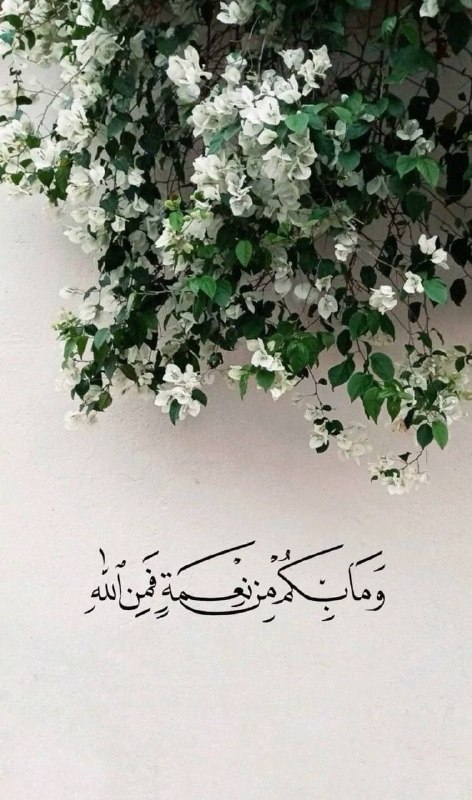 وَمَا بِكُم مِّن نِّعْمَةٍ فَمِنَ ٱللَّهِ